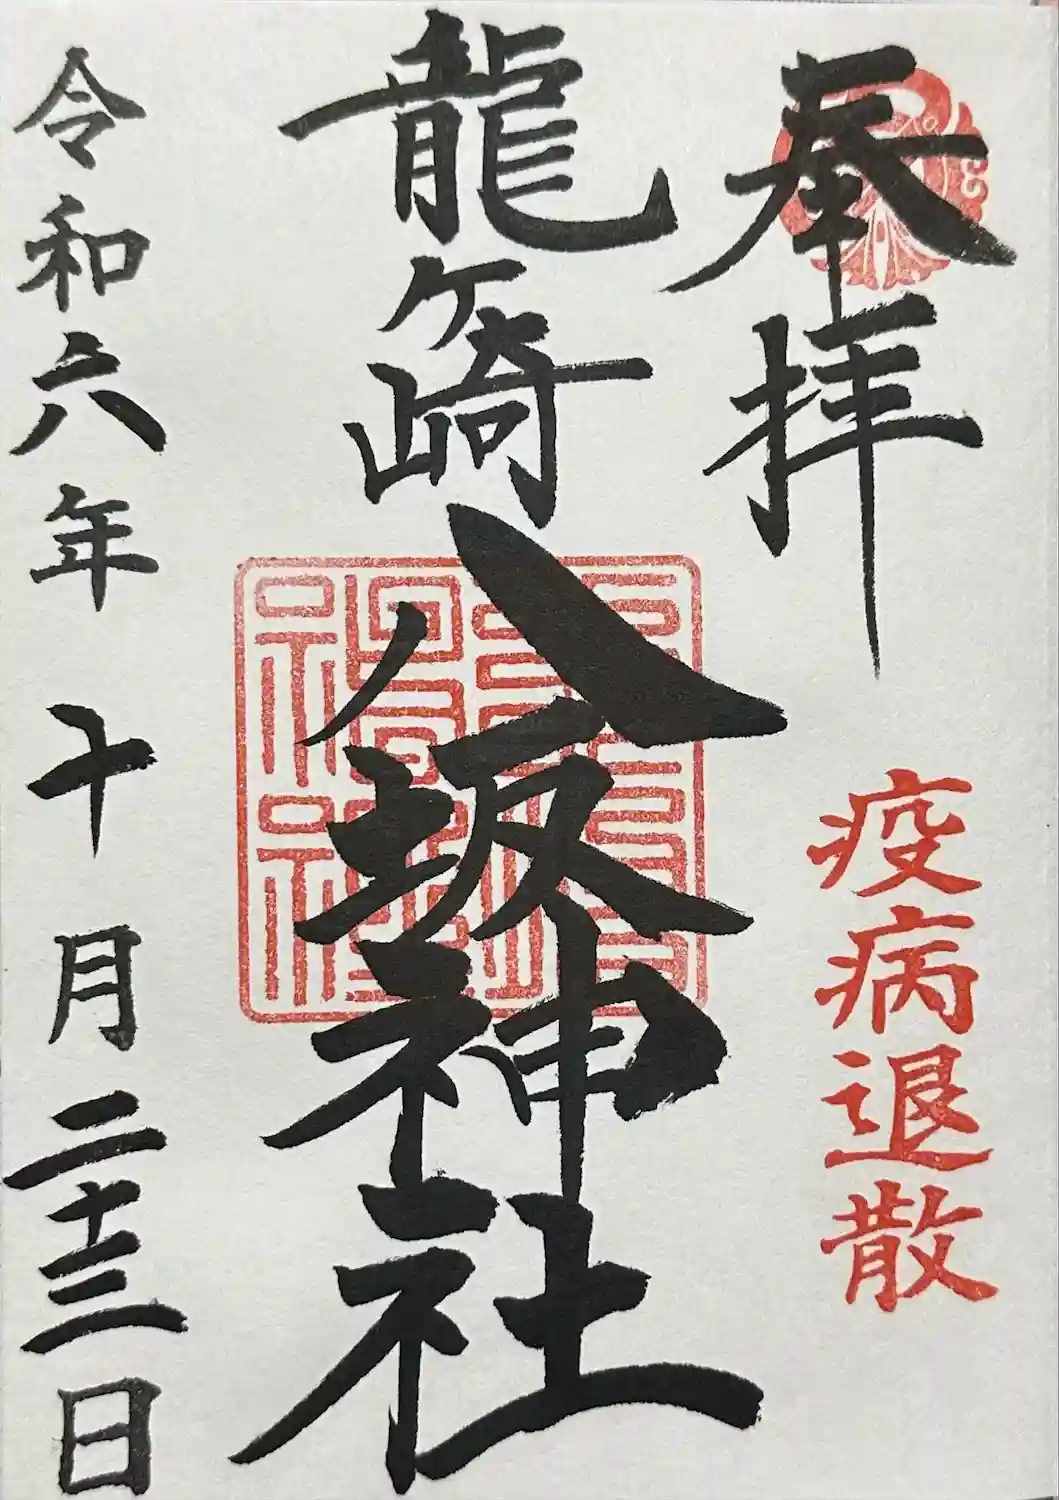 奉拝
疫病退散
龍ケ崎八坂神社
令和六年十月二十三日